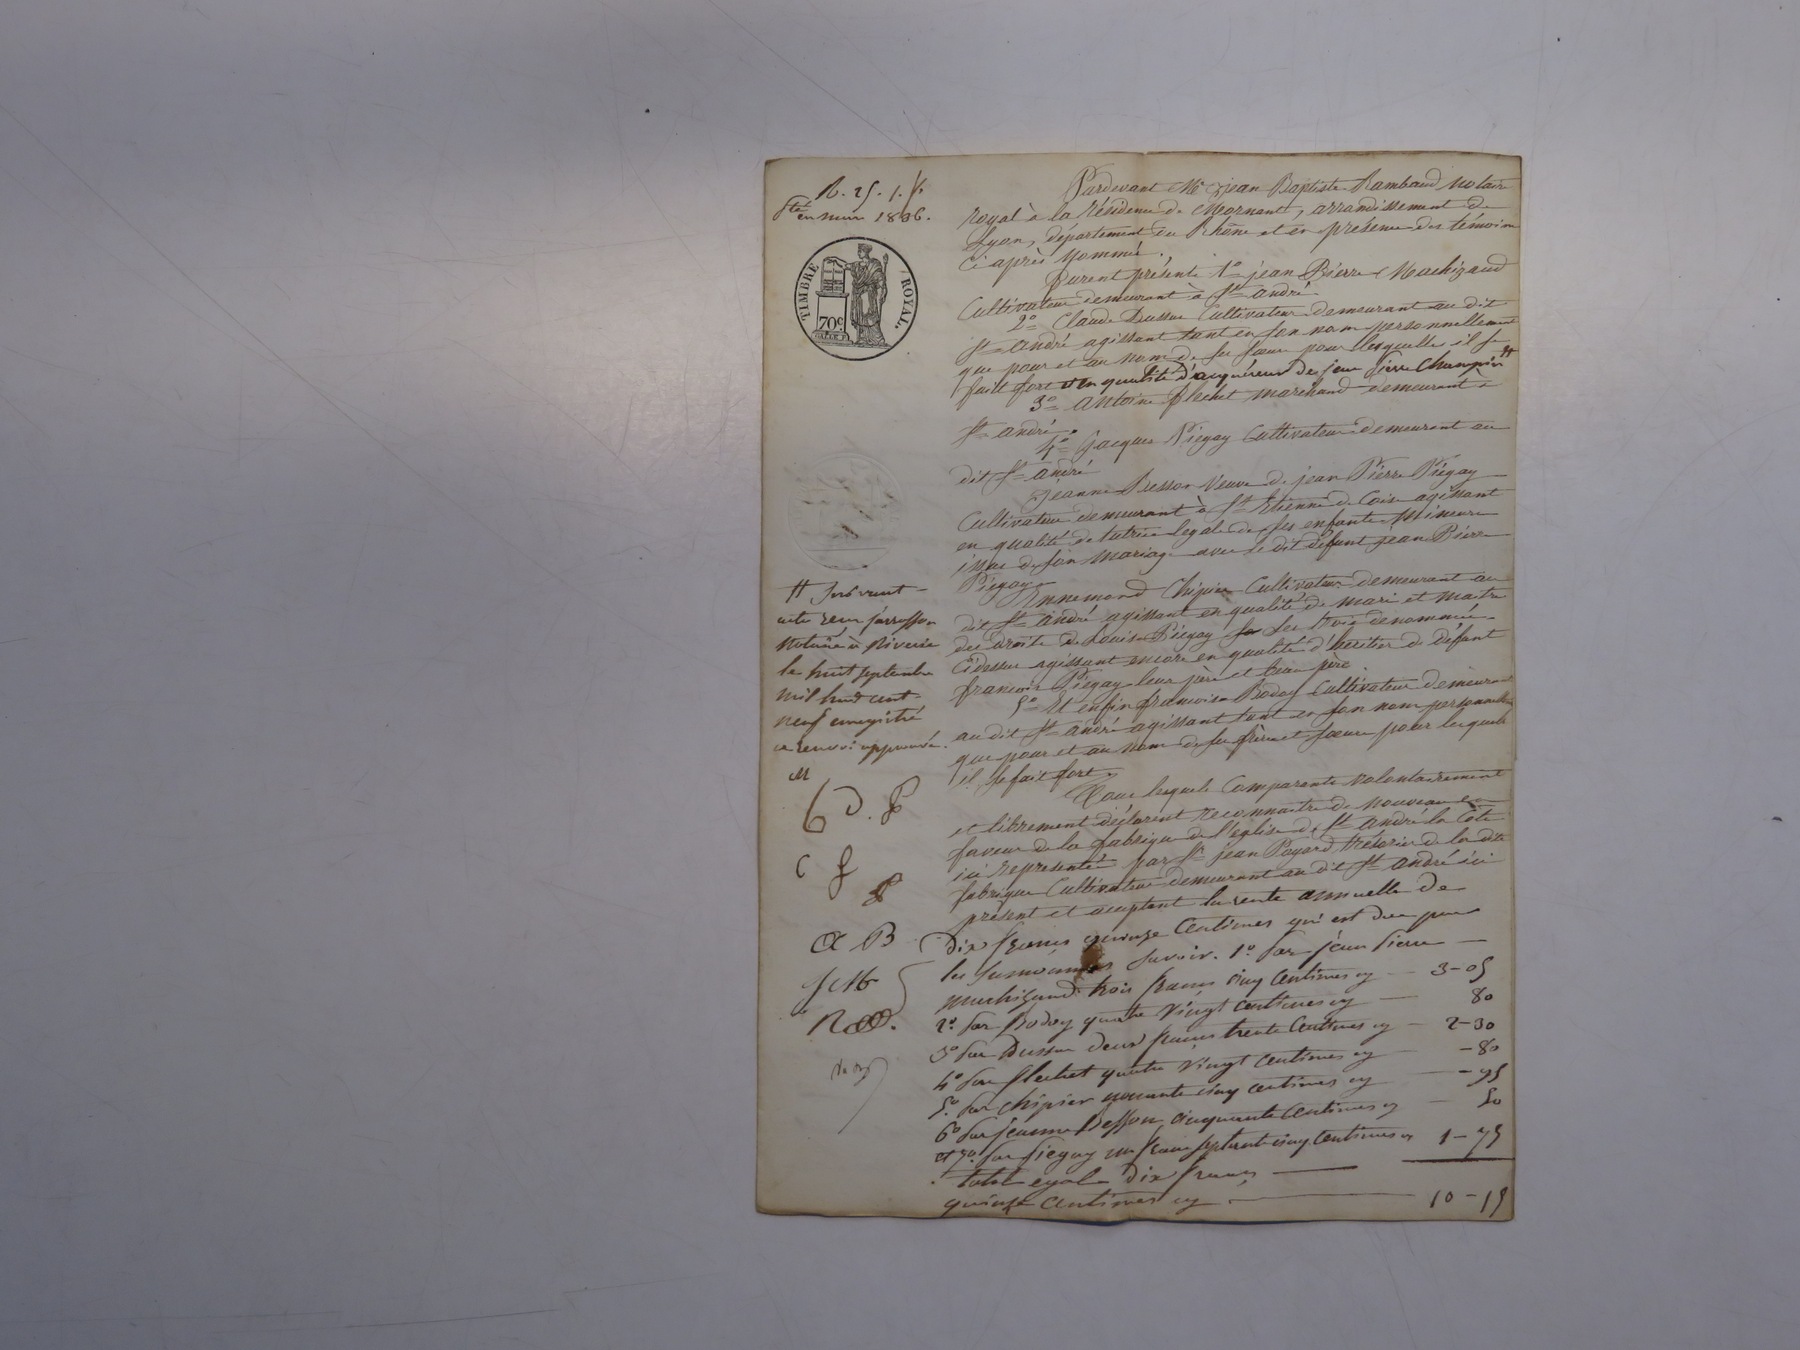 R. 25. 1. f.
en mm 1836.
TIMBRE ROYAL.
70c
Pardevant Me jean Baptiste Rambaud Notaire
royal à la résidence de Mornant, arrondissement de
Lyon, département du Rhône et en présence des témoins
Ci après Nommés.
furent présents 1o jean Pierre Machizaud
Cultivateur demeurant à St andré
2o Claude Dussu Cultivateur demeurant au dit
St andré agissant tant en son nom personnellement
que pour et au nom de ses sœurs pour lesquelles il se
fait fort et en qualité d'acquéreur de jean Pierre Champin #
3o antoine flechet marchand demeurant à
St andré
4o jacques Piegay Cultivateur demeurant au
dit St andré
Jeanne Besson Veuve de jean Pierre Piegay
Cultivateur demeurant à St Etienne de Coise agissant
en qualité de tutrice légale de ses enfants Mineurs
issus de son mariage avec le dit défunt jean Pierre
Piegay
Ennemond Chipier Cultivateur demeurant au
dit St andré agissant en qualité de mari et maitre
des droits de Louise Piegay les trois dénommés
Cidessus agissant encore en qualité d'héritiers de défunt
françois Piegay leur père et beau père
5o Et enfin françois Boday Cultivateur demeurant
au dit St andré agissant tant en son nom personnelle
que pour et au nom de ses frères et sœurs pour lesquels
il se fait fort
Tous lesquels Comparants volontairement
et librement déclarent reconnaitre de nouveau en
faveur de la fabrique de l'église de St andré la Côte
ici représentée par Sr jean Payard trésorier de la dite
fabrique Cultivateur demeurant au dit St andré ici
présent et acceptant la rente annuelle de
Dix francs quinze Centimes qui est due par
les susnommés Savoir. 1o Par jean Pierre
Machizaud trois francs cinq Centimes cy 3-05
2o Par Boday quatre vingt centimes cy 80
3o Par Dussu deux francs trente Centimes cy 2-30
4o Par flechet quatre vingt centimes cy -80
5o Par Chipier nonante cinq centimes cy -95
6o Par jeanne Besson, cinquante Centimes cy 50
et 7o Par Piegay un franc septante cinq Centimes cy 1-75
total egale dix francs
quinze Centimes cy 10-15
# suivant
acte reçu
Notaire à Riverie
le huit septembre
mil huit cent
neuf enregistré
ce renvoi approuvé.